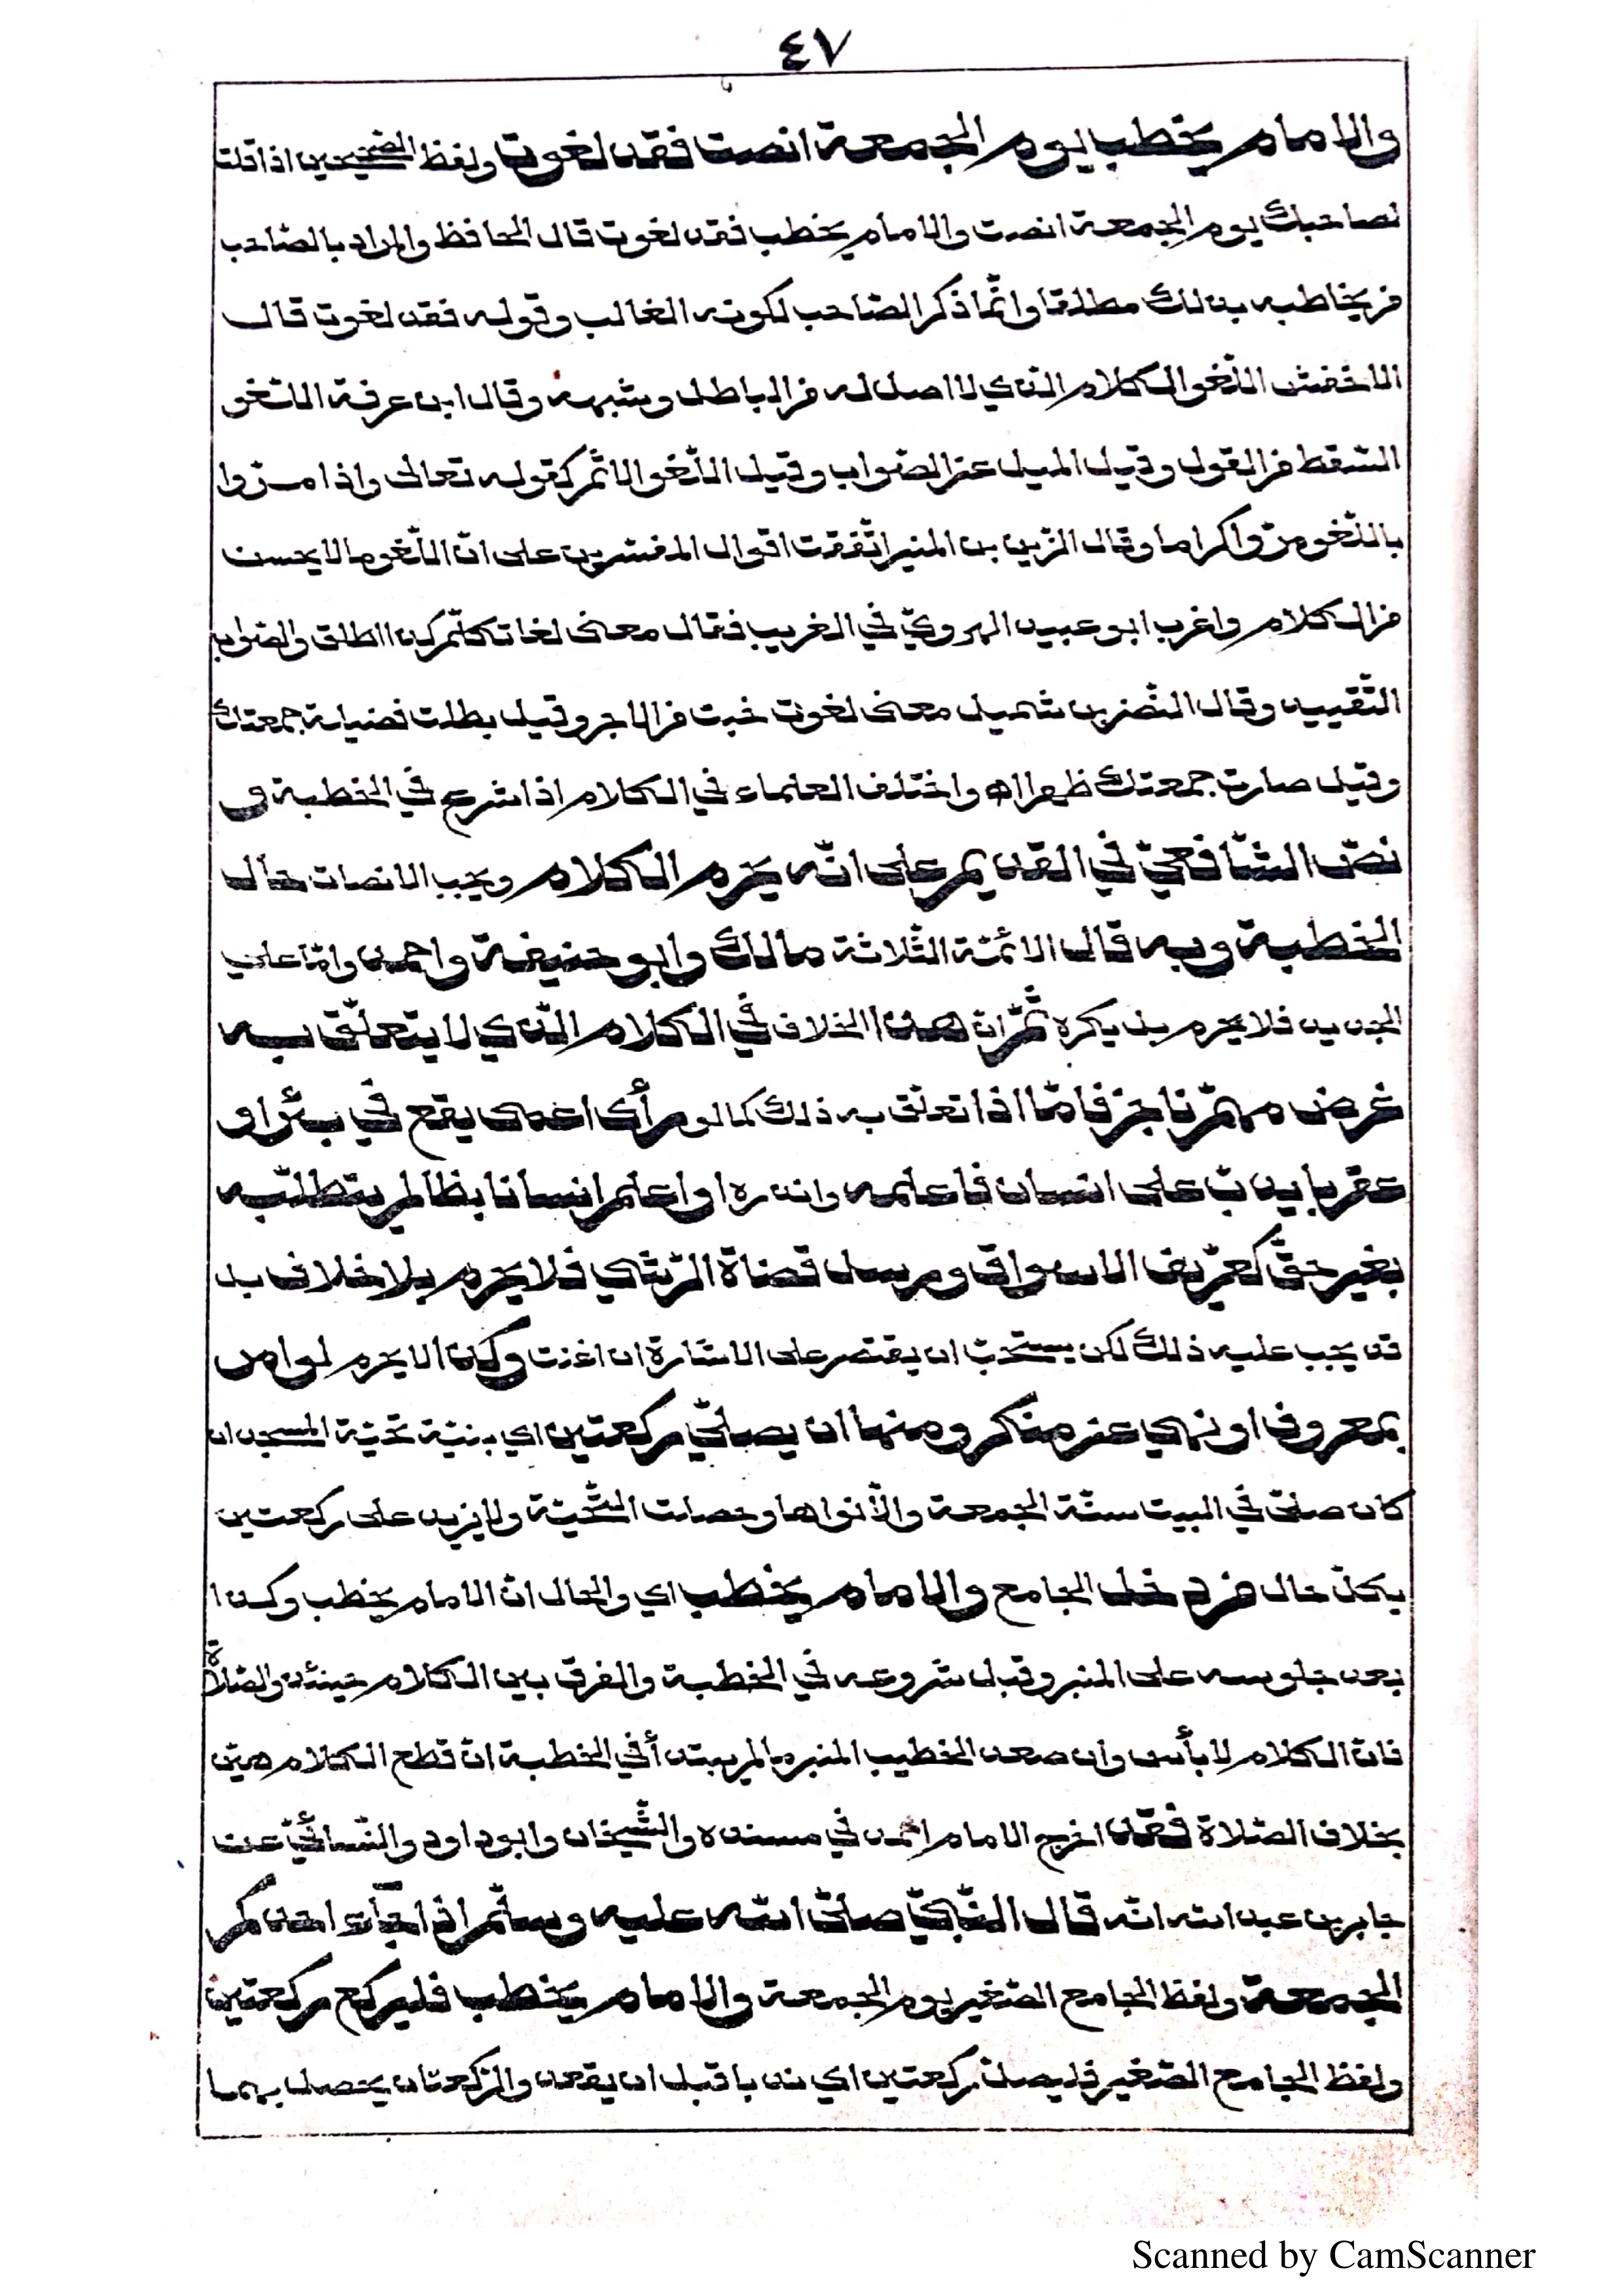 ٤٧
والامام يخطب يوم الجمعة انصت فقد لغوت ولفظ الصحيحين اذا قلت
لصاحبك يوم الجمعة انصت والامام يخطب فقد لغوت قال الحافظ والمراد بالصّاحب
من يخاطبه بذلك مطلقا وانّما ذكر الصّاحب لكونه الغالب وقوله فقد لغوت قال
الاخفش اللّغو الكلام الذي لا اصل له من الباطل وشبهه وقال ابن عرفة اللّغو
السّقط من القول وقيل الميل عن الصّواب وقيل اللّغو الاثم كقوله تعالى واذا مرّوا
باللّغو مرّوا كراما وقال الزّين بن المنير اتّفقت اقوال المفسّرين على انّ اللّغو ما لا يحسن
من الكلام واغرب ابو عبيد الهرويّ في الغريب فقال معنى لغا تكلّم كذا اطلق والصّواب
التّقييد وقال النّضر بن شميل معنى لغوت خبت من الاجر وقيل بطلت فضيلة جمعتك
وقيل صارت جمعتك ظهرا اه واختلف العلماء في الكلام اذا شرع في الخطبة و
نصّ الشّافعيّ في القديم على انّه يحرم الكلام ويجب الانصات حال
الخطبة وبه قال الائمّة الثّلاثة مالك وابو حنيفة واحمد وامّا على
الجديد فلا يحرم بل يكره ثمّ انّ هذا الخلاف في الكلام الّذي لا يتعلّق به
غرض مهمّ ناجز فامّا اذا تعلّق به ذلك كما لو رأى اعمى يقع في بئر او
عقربا يدبّ على انسان فاعلمه وانذره او اعلم انسانا بظالم يتطلّبه
بغير حقّ كعرّيف الاسواق ورسل قضاة الرّشي فلا يحرم بلا خلاف بل
قد يجب عليه ذلك لكن يستحبّ ان يقتصر على الاشارة ان اغنت وكذا لا يحرم لو امر
بمعروف او نهي عن منكر ومنها ان يصلّي ركعتين اي بنيّة تحيّة المسجد ان
كان صلّى في البيت سنّة الجمعة والّا نواها وحصلت التّحيّة ولا يزيد على ركعتين
بكلّ حال من دخل الجامع والامام يخطب اي والحال انّ الامام يخطب وكذا
بعد جلوسه على المنبر وقبل شروعه في الخطبة والفرق بين الكلام حينئذ والصّلاة
فانّ الكلام لا بأس وان صعد الخطيب المنبر ما لم يبتدأ في الخطبة انّ قطع الكلام هيّن
بخلاف الصّلاة فقد اخرج الامام احمد في مسنده والشّيخان وابو داود والنّسائيّ عن
جابر بن عبد الله انّه قال النّبيّ صلّى الله عليه وسلّم اذا جآء احدكم
الجمعة ولفظ الجامع الصّغير يوم الجمعة والامام يخطب فليركع ركعتين
ولفظ الجامع الصّغير فليصلّ ركعتين اي ندبا قبل ان يقعد والرّكعتان يحصل بهما
Scanned by CamScanner